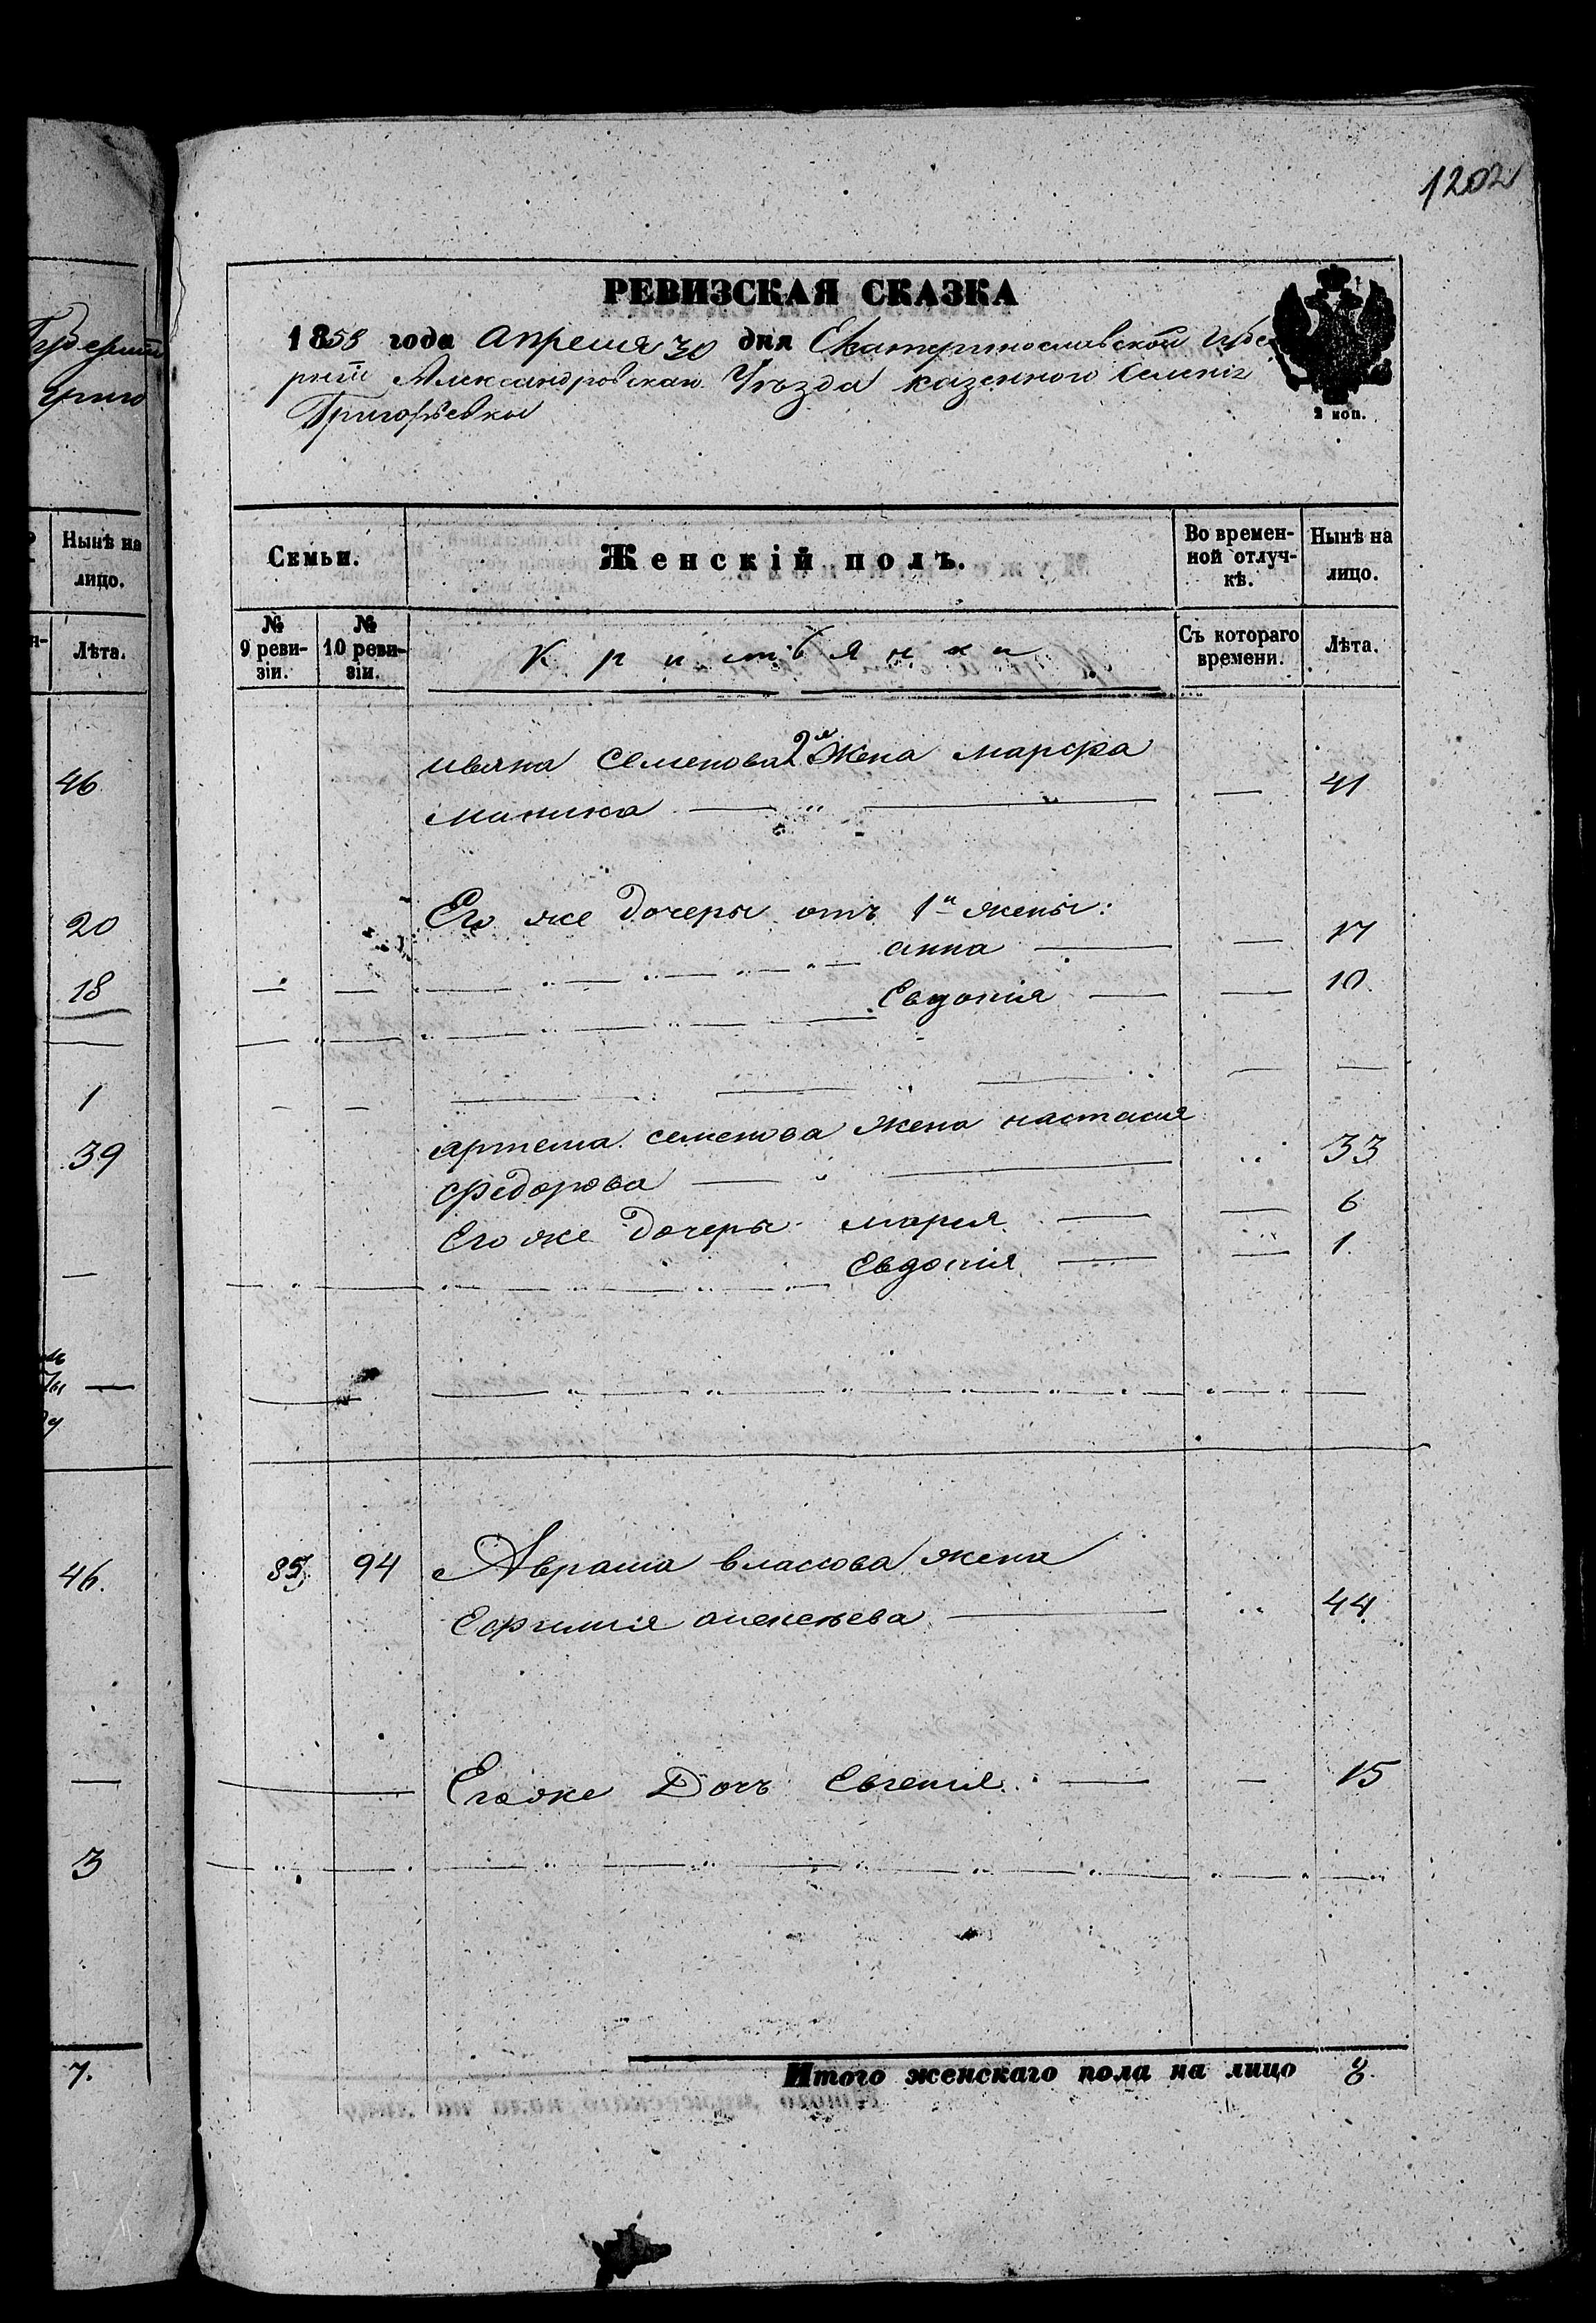 1202
РЕВИЗСКАЯ СКАЗКА
1858 года Апреля 30 дня Екатеринославской Губе
рнiи Александровскаго Уѣзда казенного селенiя
Григорьевки
2 коп.
Семьи. Женскiй полъ. Во времен-ной отлуч-кѣ. Нынѣ на лицо.
№ 9 реви-зiи. № 10 реви-зiи. Кристьянки Съ котораго времени. Лѣта.
ивана Семенова 2я Жена марфа
минина — — 41
Его же дочеры отъ 1й жены:
анна — — 17
Евдокия — — 10
артема семенова жена настасия
федорова — 33
Его же дочеры мария — — 6
Евдокiя — — 1
85 94 Аврама власова жена
Ефимия алексѣева — 44
Его же Дочь Евгения — — 15
Итого женскаго пола на лицо 8.
Губернiи
григо
Нынѣ на
лицо.
Лѣта.
46
20
18
1
39
46.
3
7.